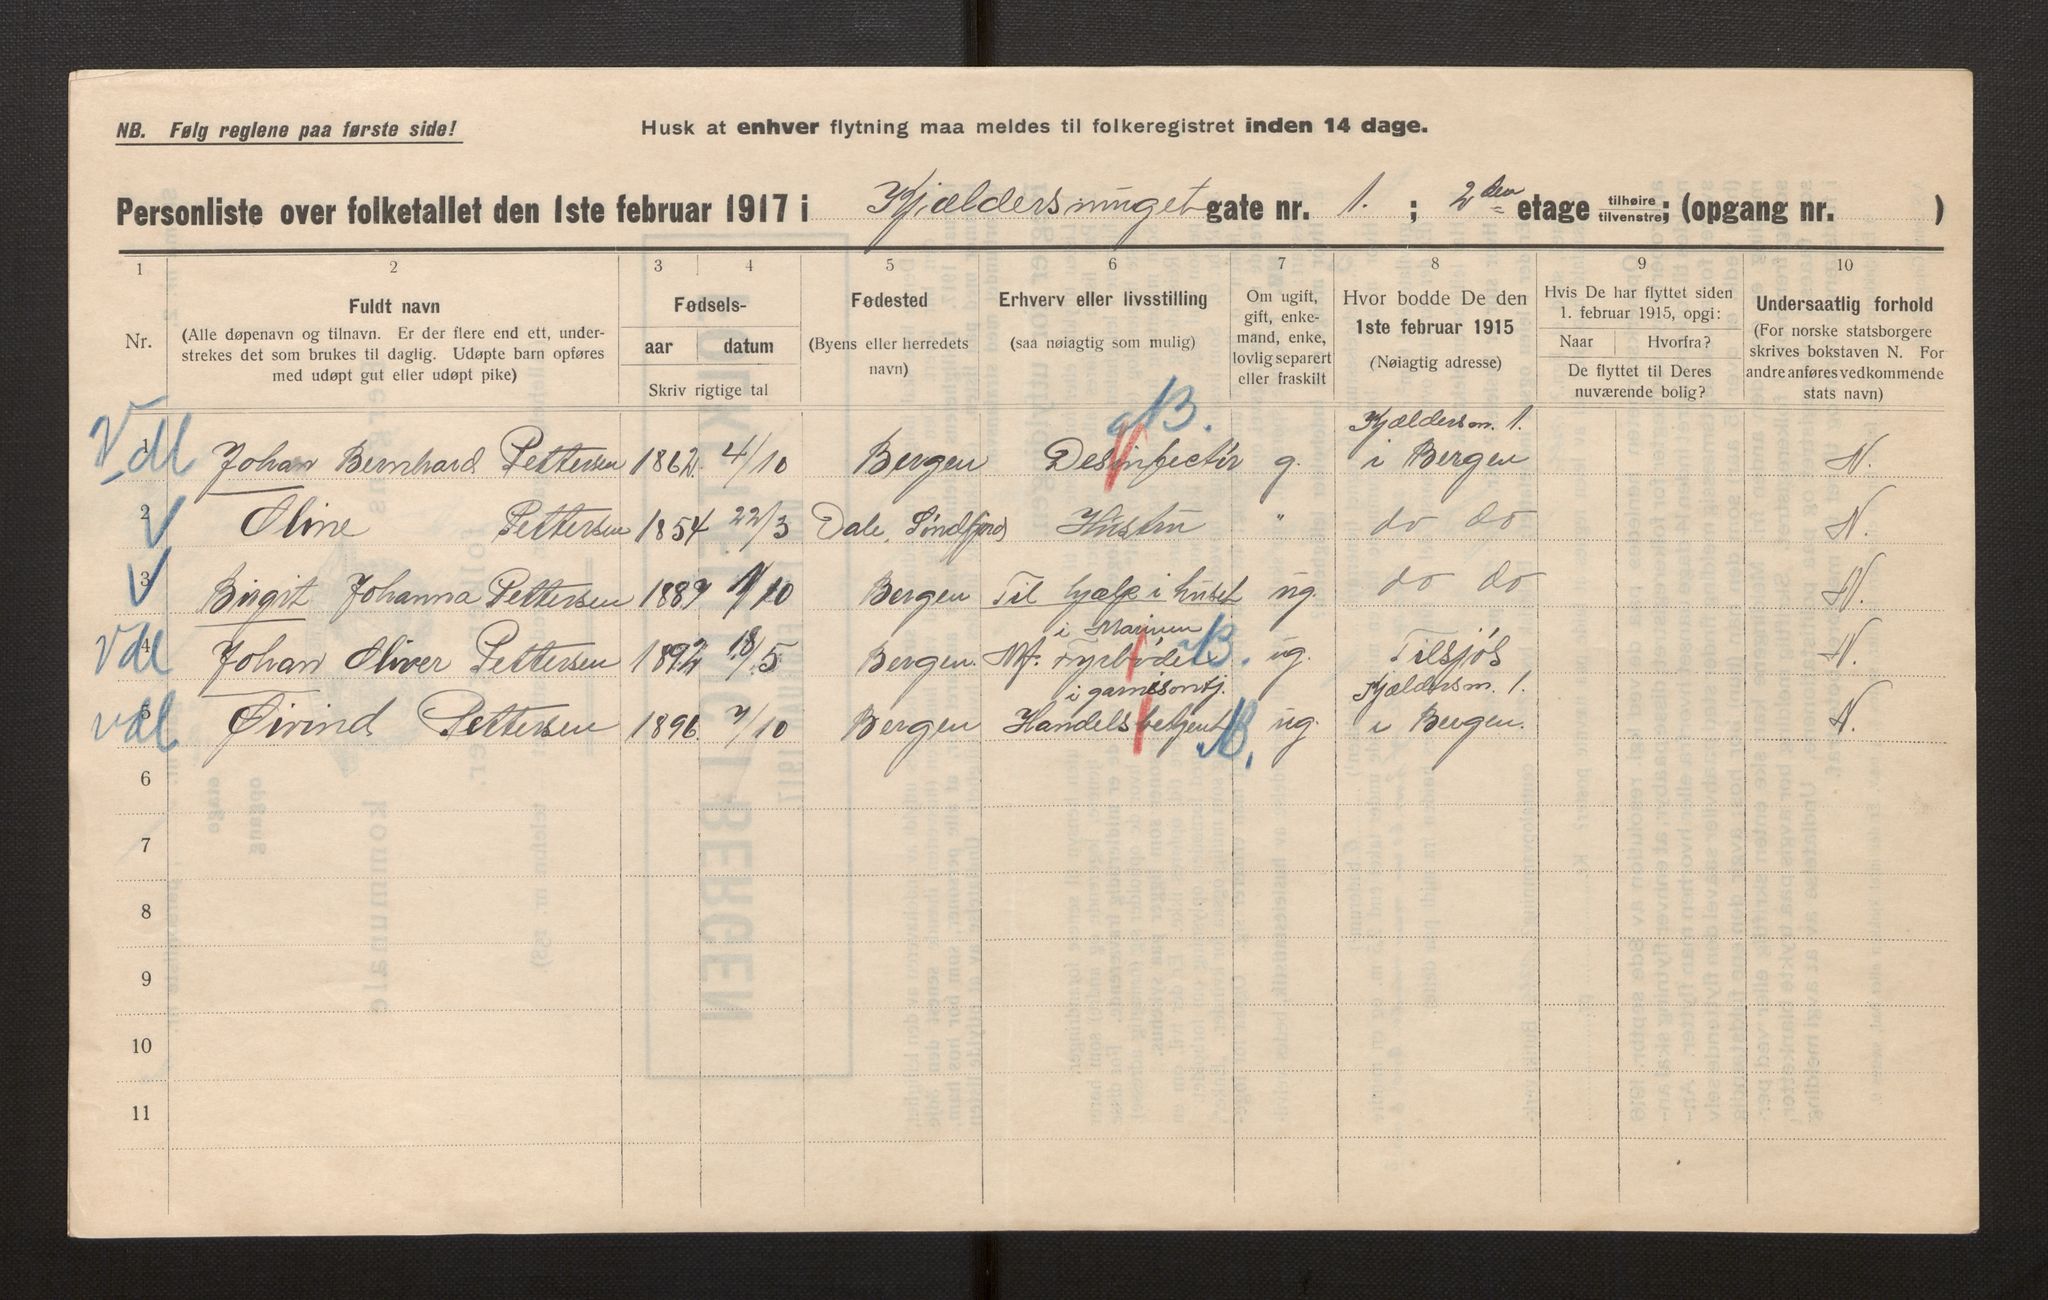 NB. Følg reglene paa første side!
Husk at enhver flytning maa meldes til folkeregistret inden 14 dage.
Personliste over folketallet den 1ste februar 1917 i Kjældersmuget gate nr. 1. ; 2den etage tilhøire tilvenstre; (opgang nr. )
1 2 3 4 5 6 7 8 9 10
Nr.
Fuldt navn
(Alle døpenavn og tilnavn. Er der flere end ett, under-
strekes det som brukes til daglig. Udøpte barn opføres
med udøpt gut eller udøpt pike)
Fødsels-
aar datum
Skriv rigtige tal
Fødested
(Byens eller herredets
navn)
Erhverv eller livsstilling
(saa nøiagtig som mulig)
Om ugift,
gift, enke-
mand, enke,
lovlig separert
eller fraskilt
Hvor bodde De den
1ste februar 1915
(Nøiagtig adresse)
Hvis De har flyttet siden
1. februar 1915, opgi:
Naar Hvorfra?
De flyttet til Deres
nuværende bolig?
Undersaatlig forhold
(For norske statsborgere
skrives bokstaven N. For
andre anføres vedkommende
stats navn)
Kjældersm. 1.
1 Johan Bernhard Pettersen 1862. 4/10 Bergen Desinfectør g. i Bergen N.
2 Oline Pettersen 1854 22/3 Dale, Søndfjord Hustru " do do N.
3 Birgit Johanna Pettersen 1889 11/10 Bergen Til hjælp i huset ug. do do N.
i Marinen
4 Johan Oliver Pettersen 1892 18/5 Bergen. Fyrbøder ug. Tilsjøs N.
i garnisonstj. Kjældersm. 1.
5 Øivind Pettersen 1896. 7/10 Bergen Handelsbetjent ug. i Bergen. N.
6
7
8
9
10
11